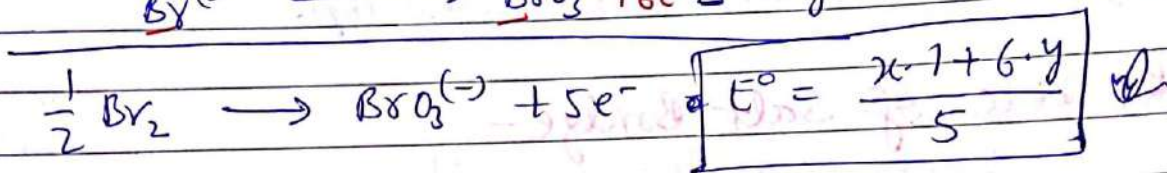 Br
½ Br₂ → BrO₃⁽⁻⁾ + 5e⁻ E° = (x·1 + 6·y)/5